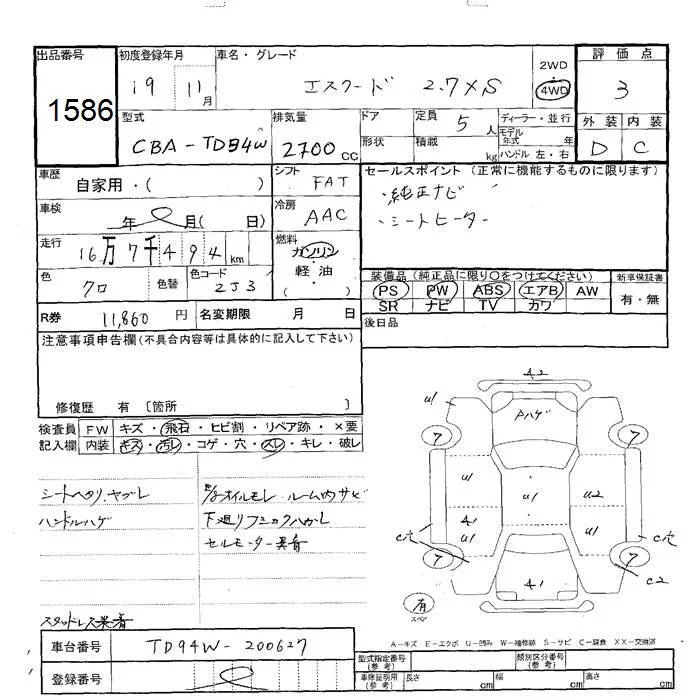 出品番号 初度登録年月 車名・グレード 2WD 評価点
1586 19 11月 エスクード 2.7XS 4WD 3
型式 排気量 ドア 定員 5人 ディーラー・並行 外装 内装
CBA-TD94W 2700cc 形状 積載 kg モデル年式 年 ハンドル 左・右 D C
車歴 自家用・( ) シフト FAT セールスポイント (正常に機能するものに限ります)
・純正ナビ
車検 年 月( 日) 冷房 AAC ・シートヒーター
走行 16万7千494km 燃料 ガソリン 軽油 ・( )
装備品 (純正品に限り○をつけてください) 新車保証書
色 クロ 色替 色コード 2J3 PS PW ABS エアB AW 有・無
SR ナビ TV カワ
R券 11,860円 名変期限 月 日 後日品
注意事項申告欄(不具合内容等は具体的に記入して下さい)
修復歴 有 〔箇所 〕
検査員 FW キズ・飛石・ヒビ割・リペア跡・×要
記入欄 内装 キズ・汚レ・コゲ・穴・スレ・キレ・破レ
シートヘタリ、ヤブレ
ハンドルハゲ
オイルモレ・ルーム内サビ
下廻りフミコクハガレ
セルモーター異音
スタッドレス装着
A2
U1 Pハゲ
7 7
U1 U1 U2
A1 U1 U1
C穴 C穴
7 7
C2
A1
有
スペア
A-キズ E-エクボ U-凹み W-補修跡 S-サビ C-腐食 XX-交換済
車台番号 TD94W-200627 型式指定番号(参考) 類別区分番号(参考)
登録番号 車庫証明用(参考) 長さ cm 幅 cm 高さ cm